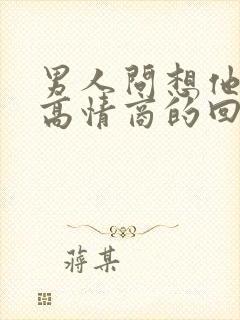 男人问想他
高情商的回
蒋某